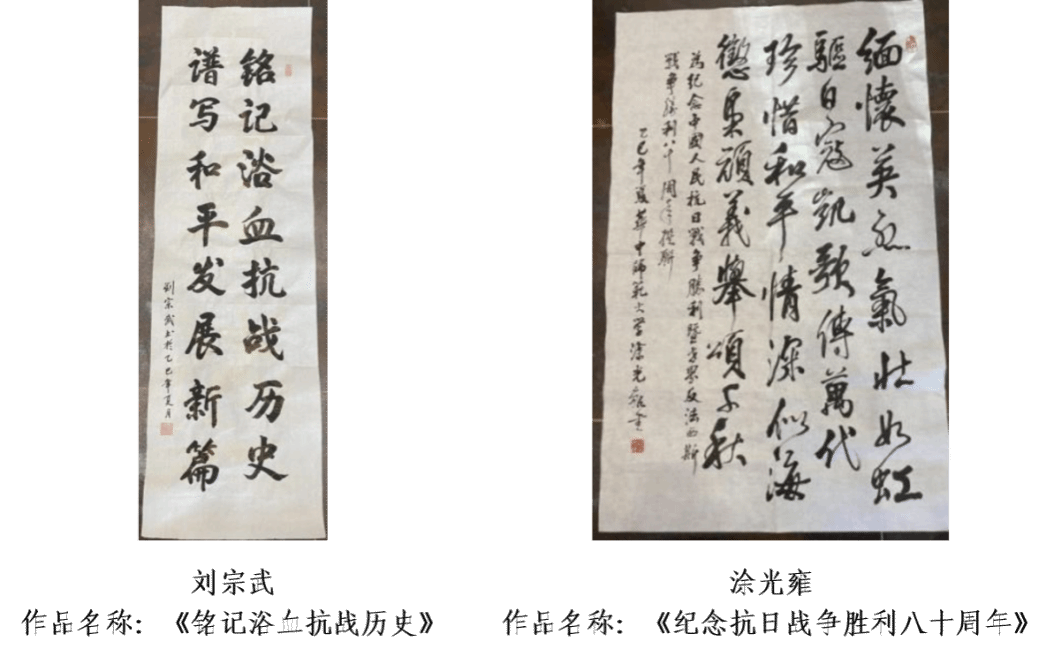 铭记浴血抗战历史
谱写和平发展新篇
刘宗武书于乙巳年夏月
缅怀英烈氣壮如虹
驅日寇凯歌傳萬代
珍惜和平情深似海
懲臭頑義舉頌千秋
为纪念中國人民抗日戰争勝利暨世界反法西斯
戰争勝利八十周年撰联
乙巳年夏華中師範大学涂光雍書
刘宗武
作品名称：《铭记浴血抗战历史》
涂光雍
作品名称：《纪念抗日战争胜利八十周年》